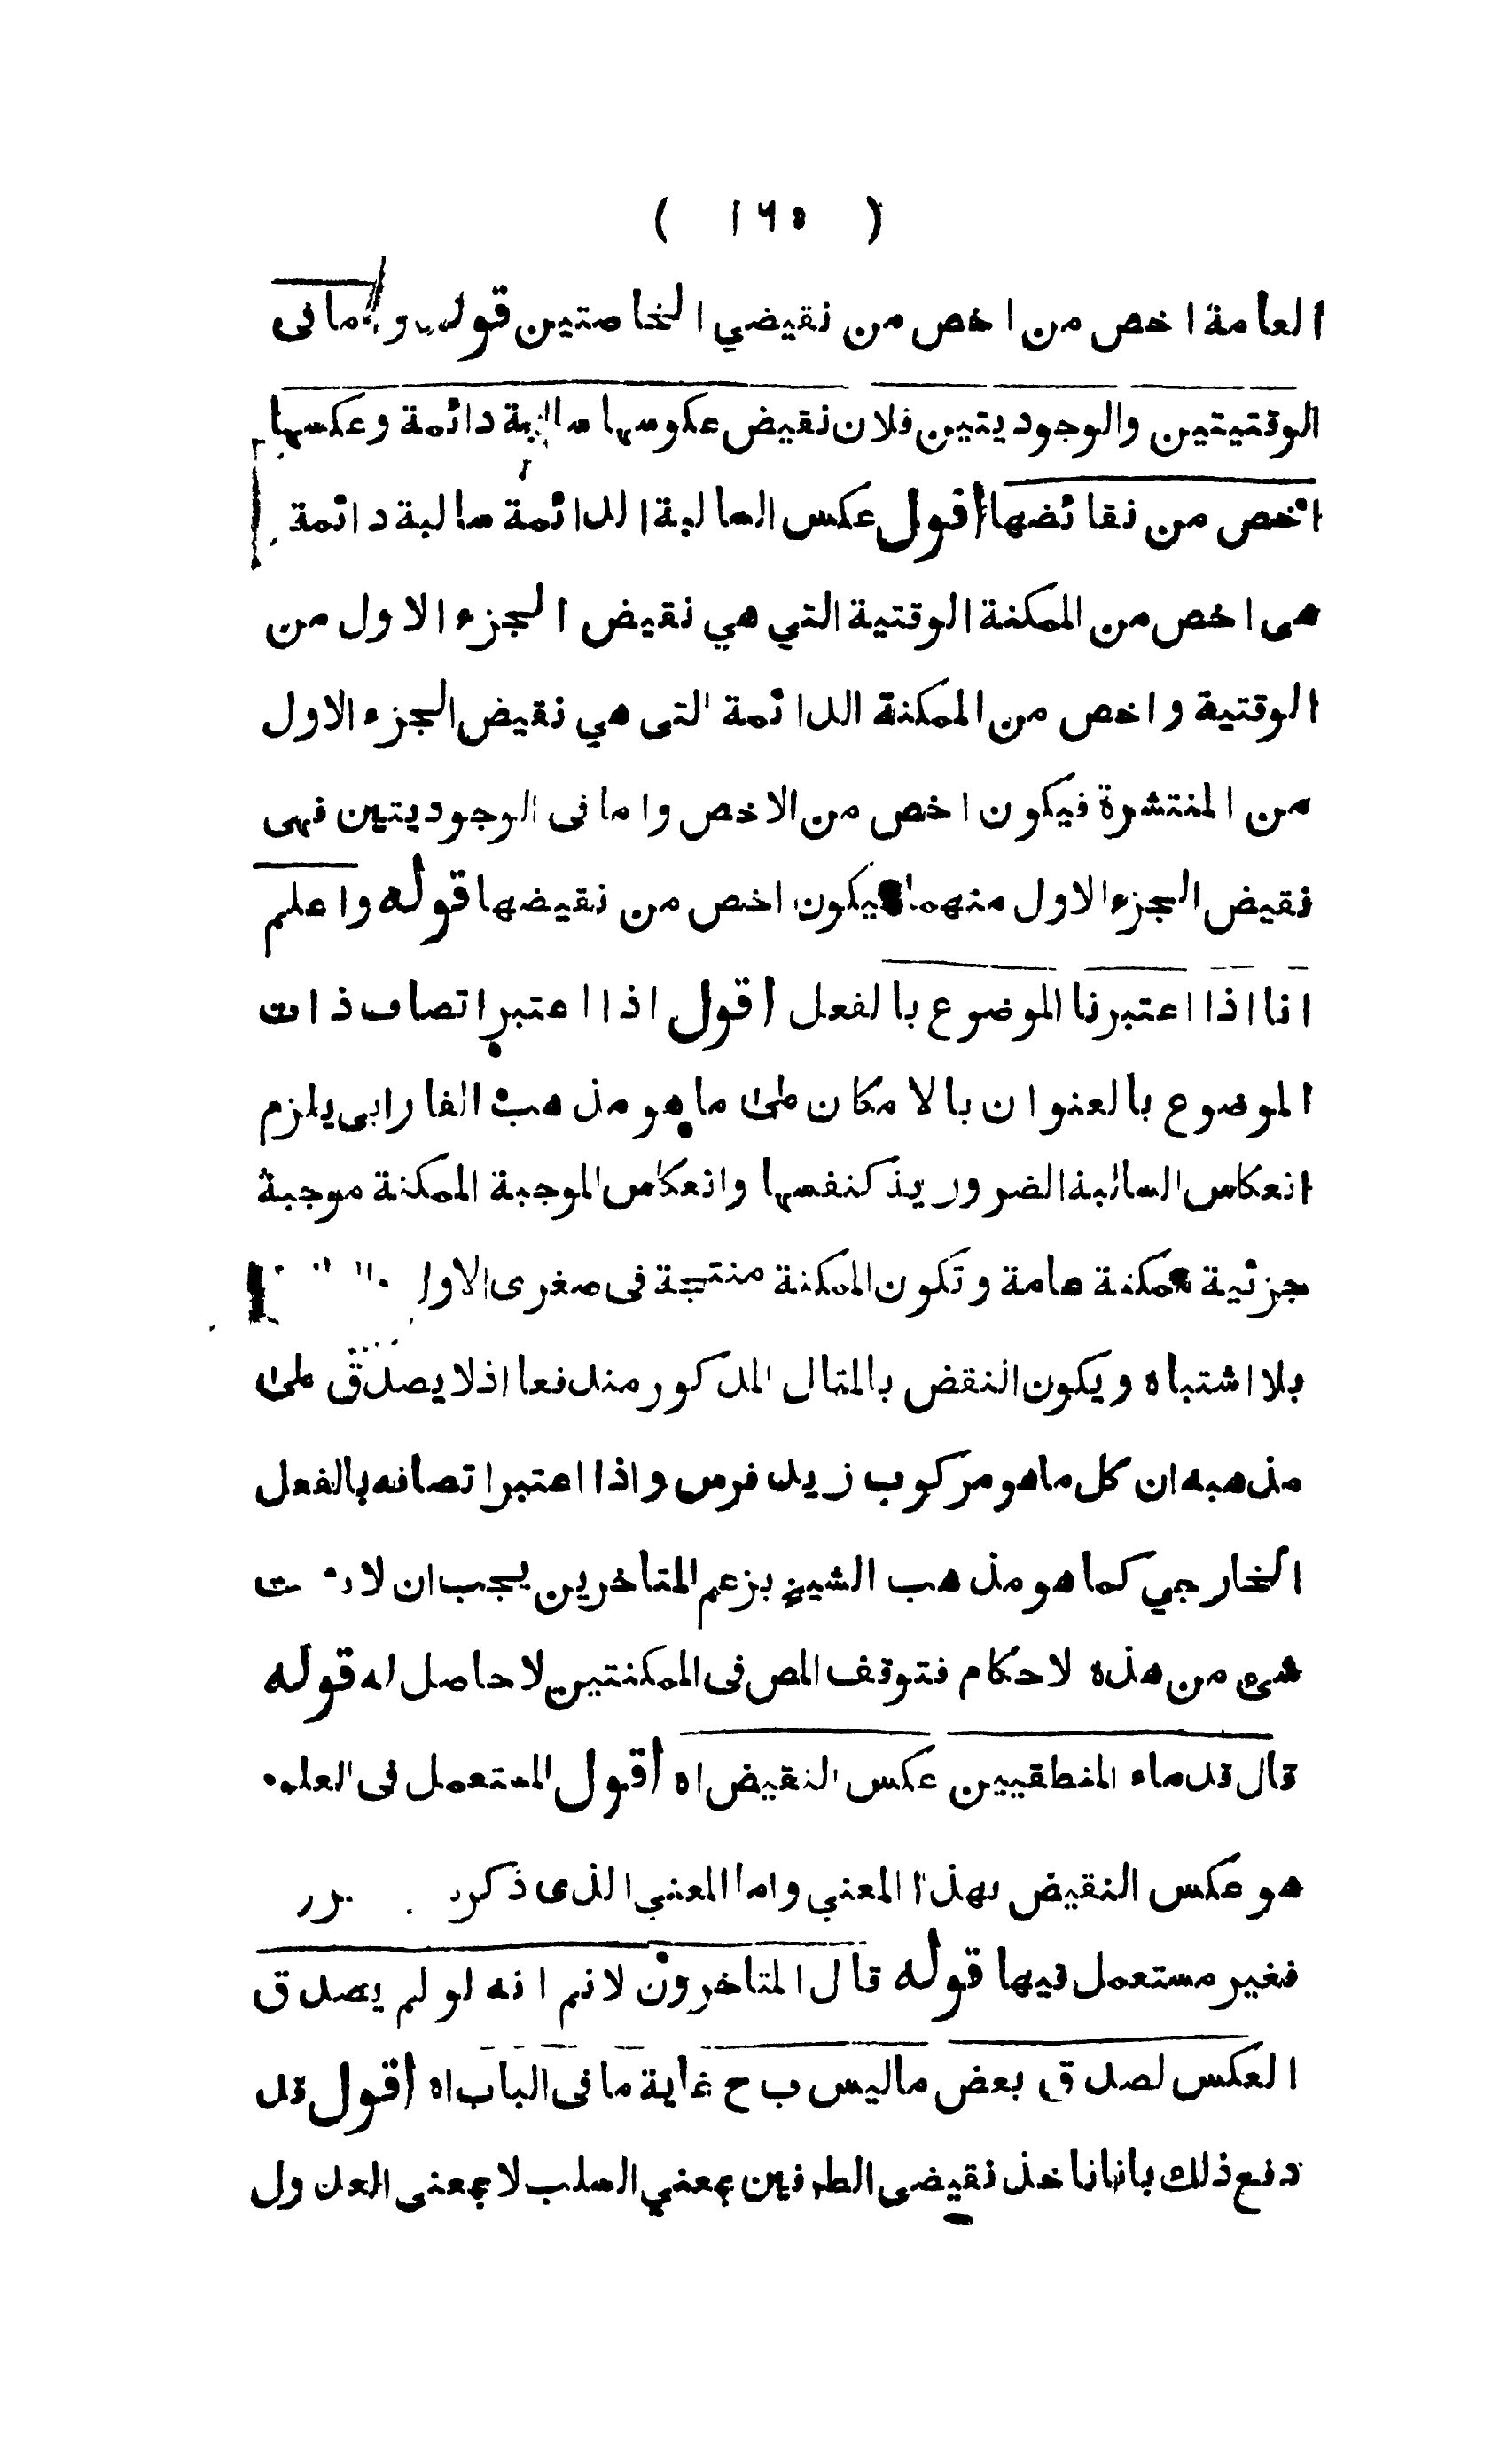 ( ١٦٥ )
العامة اخص من اخص من نقيضي الخاصتين قوله واما فى
الوقتيتين والوجوديتين فلان نقيض عكوسها سالبة دائمة وعكسها
اخص من نقائضها اقول عكس السالبة الدائمة سالبة دائمة
هى اخص من الممكنة الوقتية التي هي نقيض الجزء الاول من
الوقتية واخص من الممكنة الدائمة التى هي نقيض الجزء الاول
من المنتشرة فيكون اخص من الاخص واما فى الوجوديتين فهى
نقيض الجزء الاول منهما فيكون اخص من نقيضها قوله واعلم
انا اذا اعتبرنا الموضوع بالفعل اقول اذا اعتبر اتصاف ذات
الموضوع بالعنوان بالامكان على ما هو مذهب الفارابى يلزم
انعكاس السالبة الضرورية كنفسها وانعكاس الموجبة الممكنة موجبة
جزئية ممكنة عامة وتكون الممكنة منتجة فى صغرى الاول
بلا اشتباه ويكون النقض بالمثال المذكور مندفعا اذ لا يصدق على
مذهبه ان كل ما هو مركوب زيد فرس واذا اعتبر اتصافه بالفعل
الخارجي كما هو مذهب الشيخ بزعم المتاخرين يجب ان لا
شىء من هذه لاحكام فتوقف المص فى الممكنتين لا حاصل له قوله
قال قدماء المنطقيين عكس النقيض اه اقول المستعمل فى العلوم
هو عكس النقيض بهذا المعني واما المعني الذى ذكره
فغير مستعمل فيها قوله قال المتاخرون لانم انه لو لم يصدق
العكس لصدق بعض ماليس ب ح غاية ما فى الباب اه اقول قد
دفع ذلك بانا ناخذ نقيضى الطرفين بمعني السلب لا بمعنى العدول